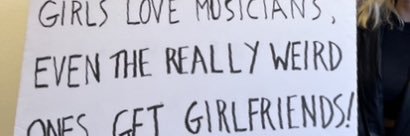 GIRLS LOVE MUSICIANS,
EVEN THE REALLY WEIRD
ONES GET GIRLFRIENDS!